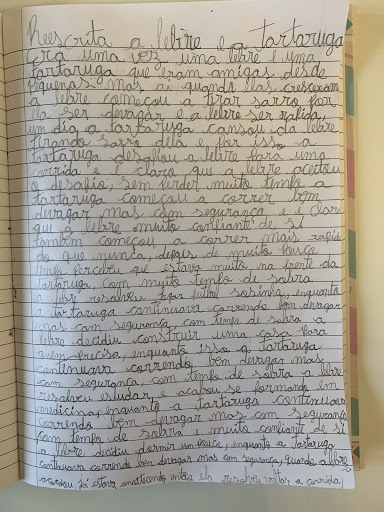 Reescrita a lebre e a tartaruga
Era uma vez uma lebre e uma
tartaruga que eram amigas desde
pequenas mas ai quando elas cresceram
a lebre começou a tirar sarro por
ela ser devagar e a lebre ser rapida,
um dia a tartaruga cansou da lebre
tirando sarro dela e por isso a
tartaruga desafiou a lebre para uma
corrida e é claro que a lebre aceitou
o desafio, sem perder muito tempo a
tartaruga começou a correr bem
devagar mas com segurança e é claro
que a lebre muito confiante de si
também começou a correr mais rapido
do que nunca, depois de muito pouco
tempo percebeu que estava muito na frente da
tartaruga, com muito tempo de sobra
a lebre resolveu jogar futbol sosinha, enquanto
a tartaruga continuava correndo bem devagar
mas com segurança, com tempo de sobra a
lebre decidiu construir uma casa para
quem precisa, enquanto isso a tartaruga
continuava correndo bem devagar mas
com segurança, com tempo de sobra a lebre
resolveu estudar e acabou se formando em
medicina, enquanto a tartaruga continuava
correndo bem devagar mas com segurança
com tempo de sobra e muito confiante de si
a lebre decidiu dormir um pouco, enquanto a tartaruga
continuava correndo bem devagar mas com segurança, quando a lebre
acordou, já estava anoitecendo então ela resolveu voltar a corrida